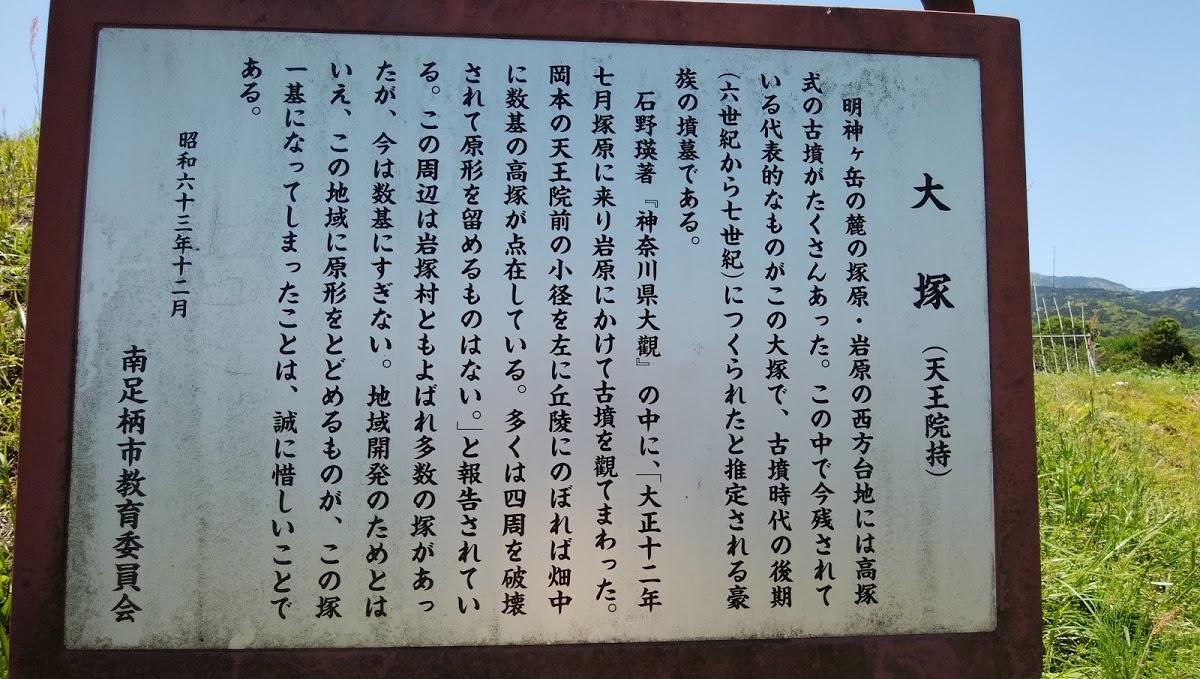 大塚（天王院持）
明神ヶ岳の麓の塚原・岩原の西方台地には高塚
式の古墳がたくさんあった。この中で今残されて
いる代表的なものがこの大塚で、古墳時代の後期
（六世紀から七世紀）につくられたと推定される豪
族の墳墓である。
石野瑛著『神奈川県大觀』の中に、「大正十二年
七月塚原に来り岩原にかけて古墳を観てまわった。
岡本の天王院前の小径を左に丘陵にのぼれば畑中
に数基の高塚が点在している。多くは四周を破壊
されて原形を留めるものはない。」と報告されてい
る。この周辺は岩塚村ともよばれ多数の塚があっ
たが、今は数基にすぎない。地域開発のためとは
いえ、この地域に原形をとどめるものが、この塚
一基になってしまったことは、誠に惜しいことで
ある。
昭和六十三年十二月
南足柄市教育委員会